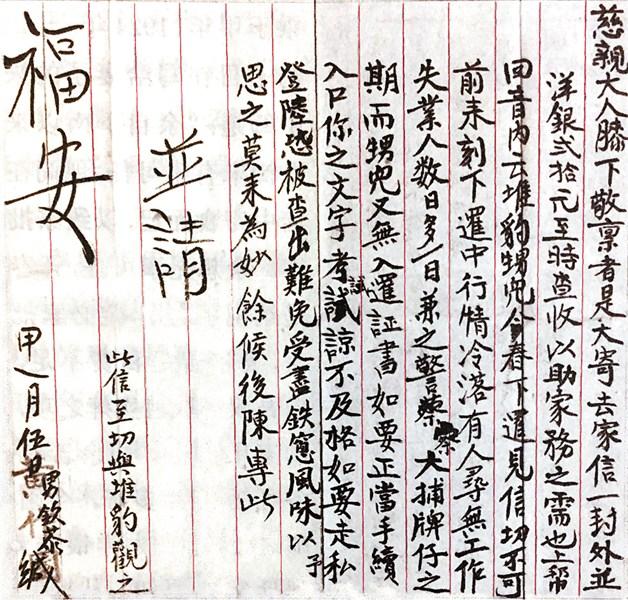 慈親大人膝下敬禀者是天寄去家信一封外並
洋銀弍拾元至時查收以助家務之需也上幫
回音内云堆豹甥兒今春下暹見信切不可
前来刻下暹中行情冷落有人尋無工作
失業人数日多一日兼之警察大捕牌仔之
期而甥兒又無入暹証書如要正當手續
入口你之文字考試諒不及格如要走私
登陸恐被查出難免受盡鉄窓風味以予
思之莫来為妙餘候後陳專此
並請
福安
此信至切與堆豹觀之
甲一月伍
男欽泰
緘